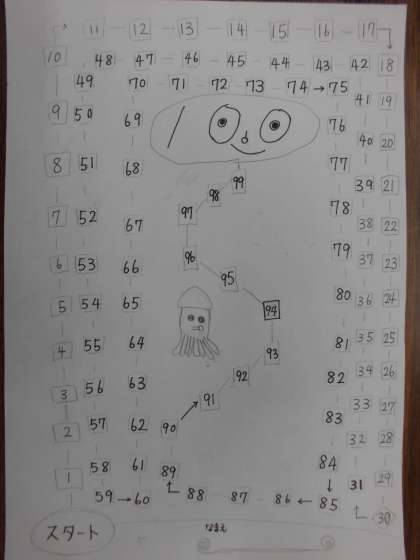 11 12 13 14 15 16 17
10 48 47 46 45 44 43 42 18
49 70 71 72 73 74 → 75 41 19
9 50 69 100 76 40 20
8 51 68 99 77 39 21
98
7 52 67 97 78 38 22
6 53 66 96 79 37 23
95
5 54 65 94 80 36 24
4 55 64 93 81 35 25
3 56 63 92 82 34 26
91 33 27
2 57 62 90 83 32 28
1 58 61 89 84 31 29
59 → 60 88 87 86 ← 85 30
スタート
なまえ